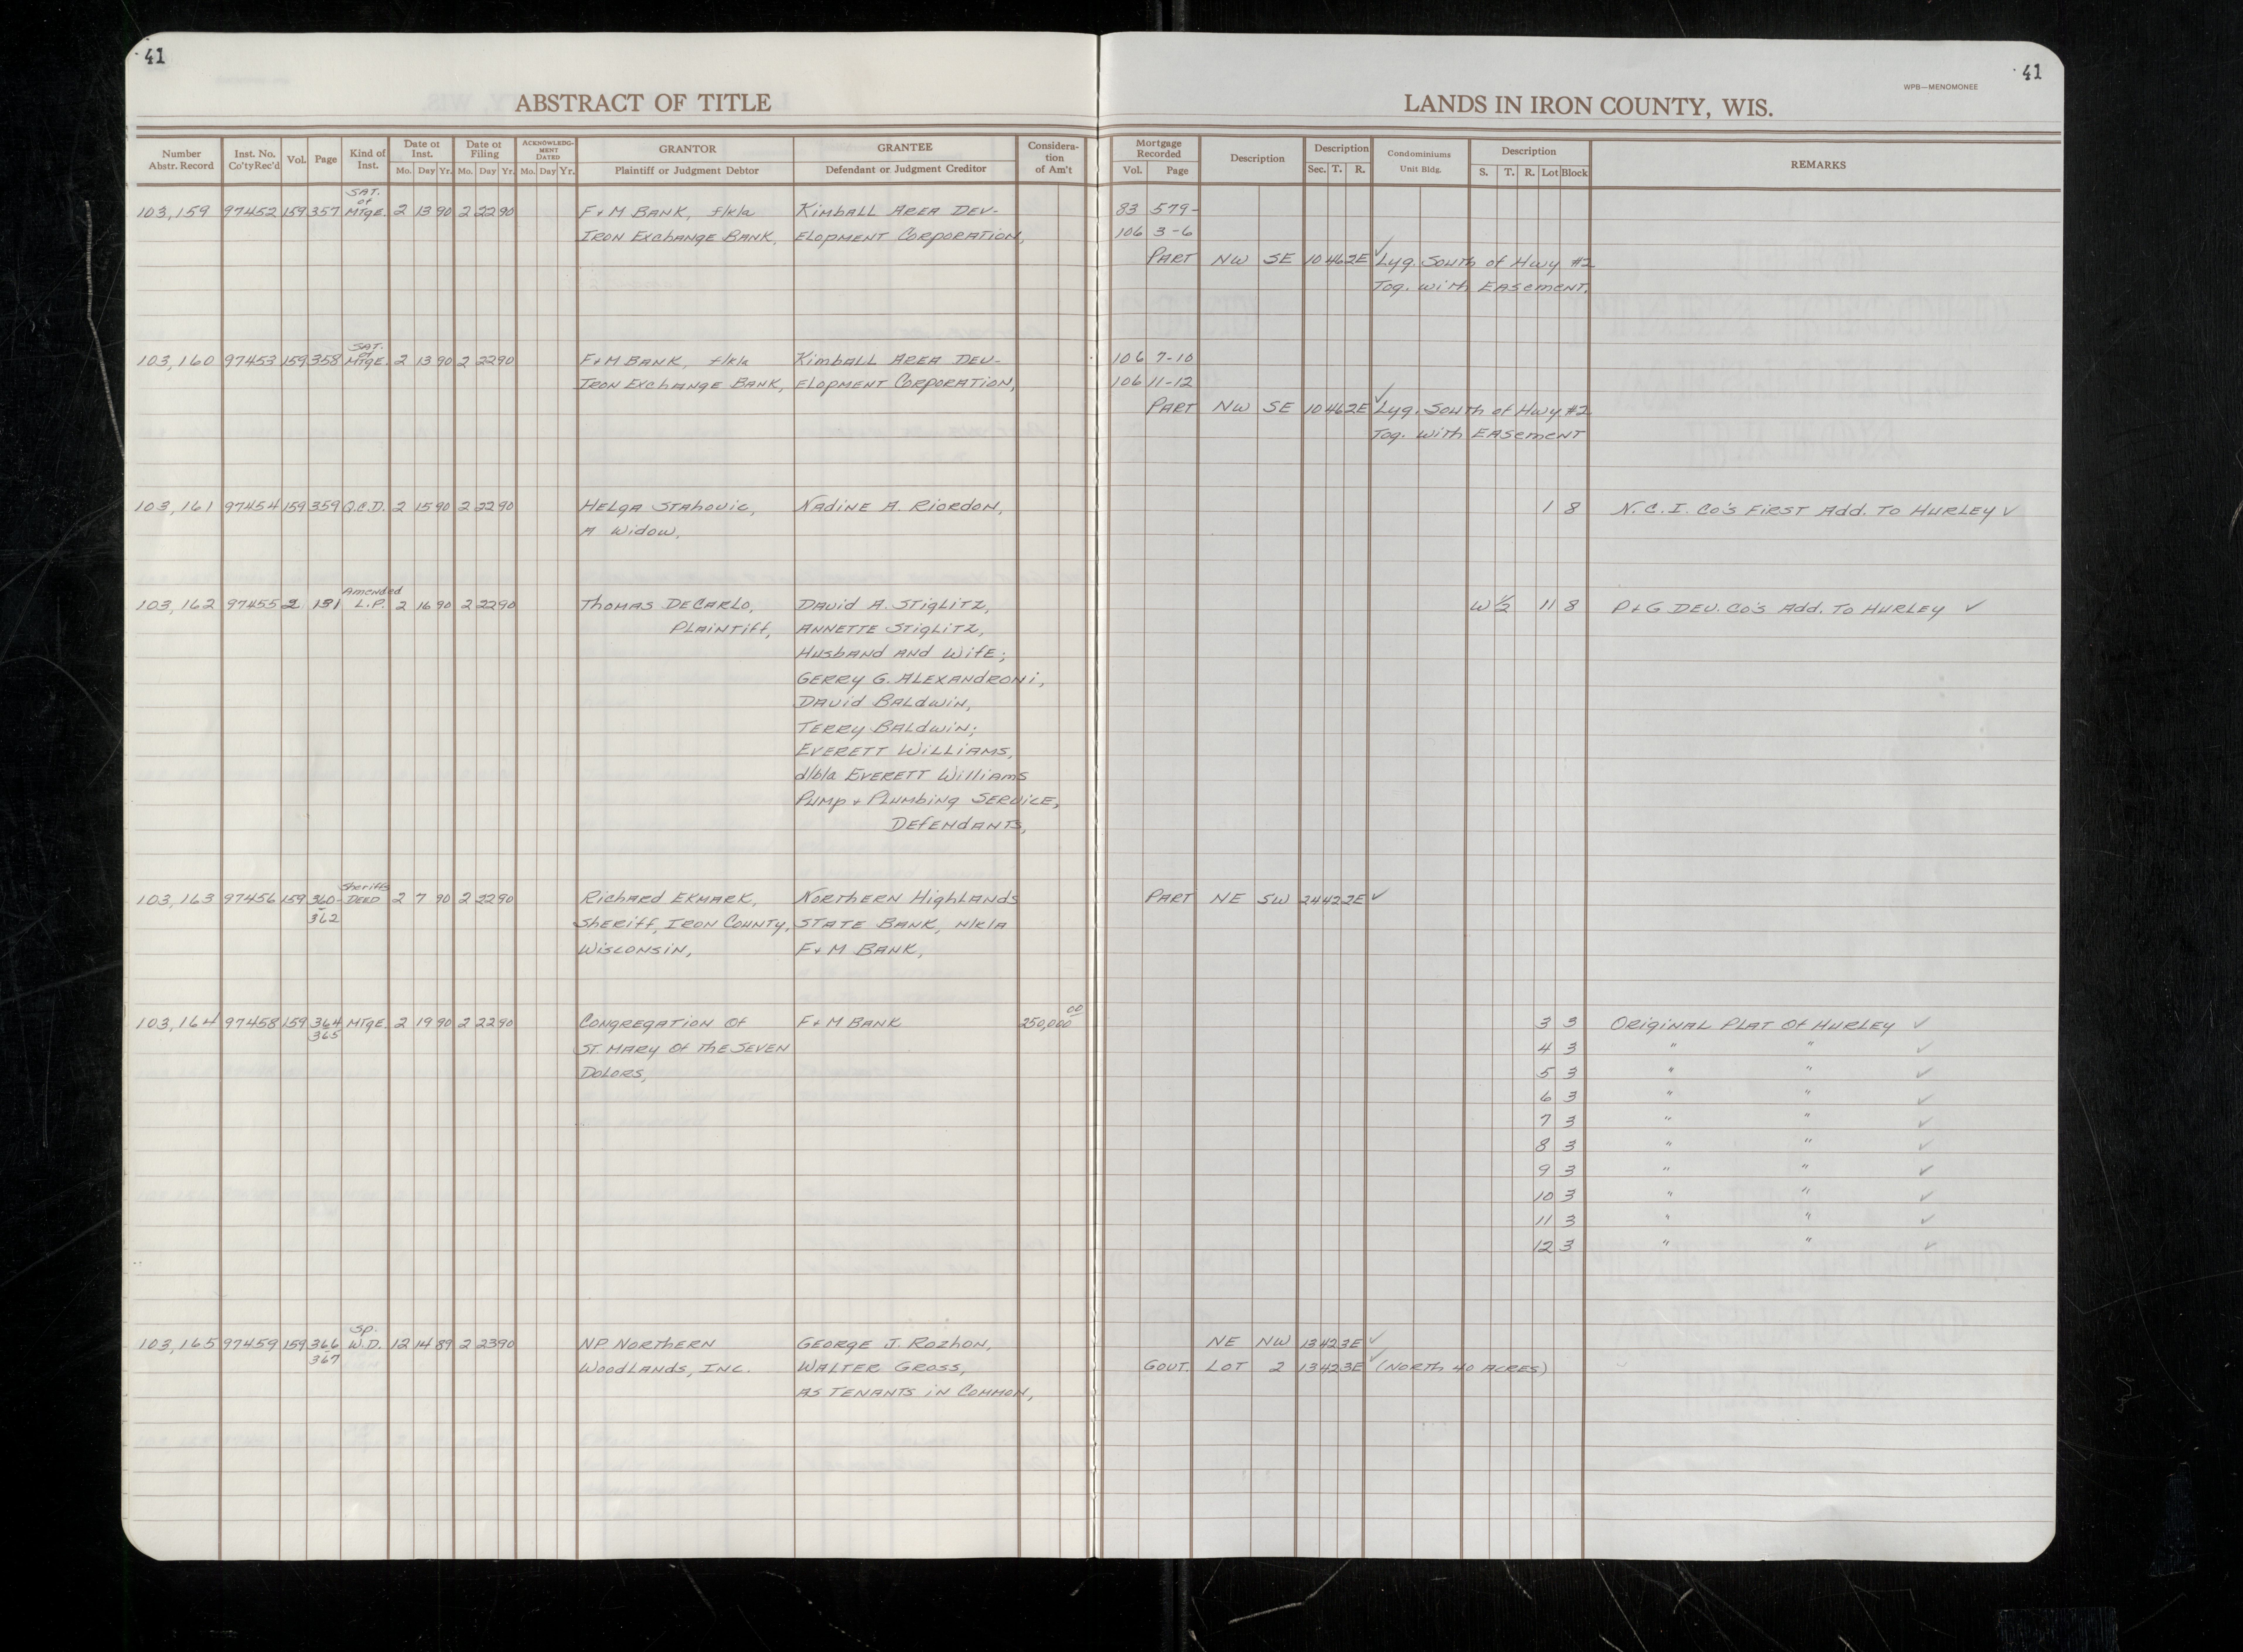 41
41
WPB—MENOMONEE
ABSTRACT OF TITLE
LANDS IN IRON COUNTY, WIS.
Number Abstr. Record Inst. No. Co'ty Rec'd Vol. Page Kind of Inst. Date of Inst. Mo. Day Yr. Date of Filing Mo. Day Yr. ACKNOWLEDGMENT DATED Mo. Day Yr. GRANTOR Plaintiff or Judgment Debtor GRANTEE Defendant or Judgment Creditor Consideration of Am't Mortgage Recorded Vol. Page Description Description Sec. T. R. Condominiums Unit Bldg. Description S. T. R. Lot Block REMARKS
SAT. of
103,159 97452 159 357 MTGE. 2 13 90 2 22 90 F & M BANK, f/k/a KIMBALL AREA DEV- 83 579-
IRON EXCHANGE BANK, ELOPMENT CORPORATION, 106 3-6
PART NW SE 10 46 2E ✓ Lyg. South of Hwy #2
Tog. with EASEMENT.
SAT. of
103,160 97453 159 358 MTGE. 2 13 90 2 22 90 F & M BANK, f/k/a KIMBALL AREA DEV- 106 7-10
IRON EXCHANGE BANK, ELOPMENT CORPORATION, 106 11-12
PART NW SE 10 46 2E ✓ Lyg. South of Hwy #2
Tog. with EASEMENT
103,161 97454 159 359 Q.C.D. 2 15 90 2 22 90 HELGA STAHOVIC, NADINE A. RIORDON, 1 8 N.C.I. Co's FIRST Add. TO HURLEY ✓
A Widow,
Amended
103,162 97455 2 131 L.P. 2 16 90 2 22 90 THOMAS DECARLO, DAVID A. STIGLITZ, W 1/2 11 8 P & G DEV. Co's Add. TO HURLEY ✓
PLAINTIFF, ANNETTE STIGLITZ,
HUSBAND AND WIFE;
GERRY G. ALEXANDRONI,
DAVID BALDWIN,
TERRY BALDWIN;
EVERETT WILLIAMS,
d/b/a EVERETT WILLIAMS
PUMP & PLUMBING SERVICE,
DEFENDANTS,
Sheriffs
103,163 97456 159 360- DEED 2 7 90 2 22 90 RICHARD EKMARK, NORTHERN HIGHLANDS PART NE SW 24 42 2E ✓
362 SHERIFF, IRON COUNTY, STATE BANK, N/K/A
WISCONSIN, F & M BANK,
103,164 97458 159 364 MTGE. 2 19 90 2 22 90 CONGREGATION OF F & M BANK 250,000 00 3 3 ORIGINAL PLAT OF HURLEY ✓
365 ST. MARY OF THE SEVEN 4 3 " " ✓
DOLORS, 5 3 " " ✓
6 3 " " ✓
7 3 " " ✓
8 3 " " ✓
9 3 " " ✓
10 3 " " ✓
11 3 " " ✓
12 3 " " ✓
Sp.
103,165 97459 159 366 W.D. 12 14 89 2 23 90 NP NORTHERN GEORGE J. ROZHON, NE NW 13 42 3E ✓
367 WOODLANDS, INC. WALTER GROSS, GOVT. LOT 2 13 42 3E ✓ (NORTH 40 ACRES)
AS TENANTS IN COMMON,